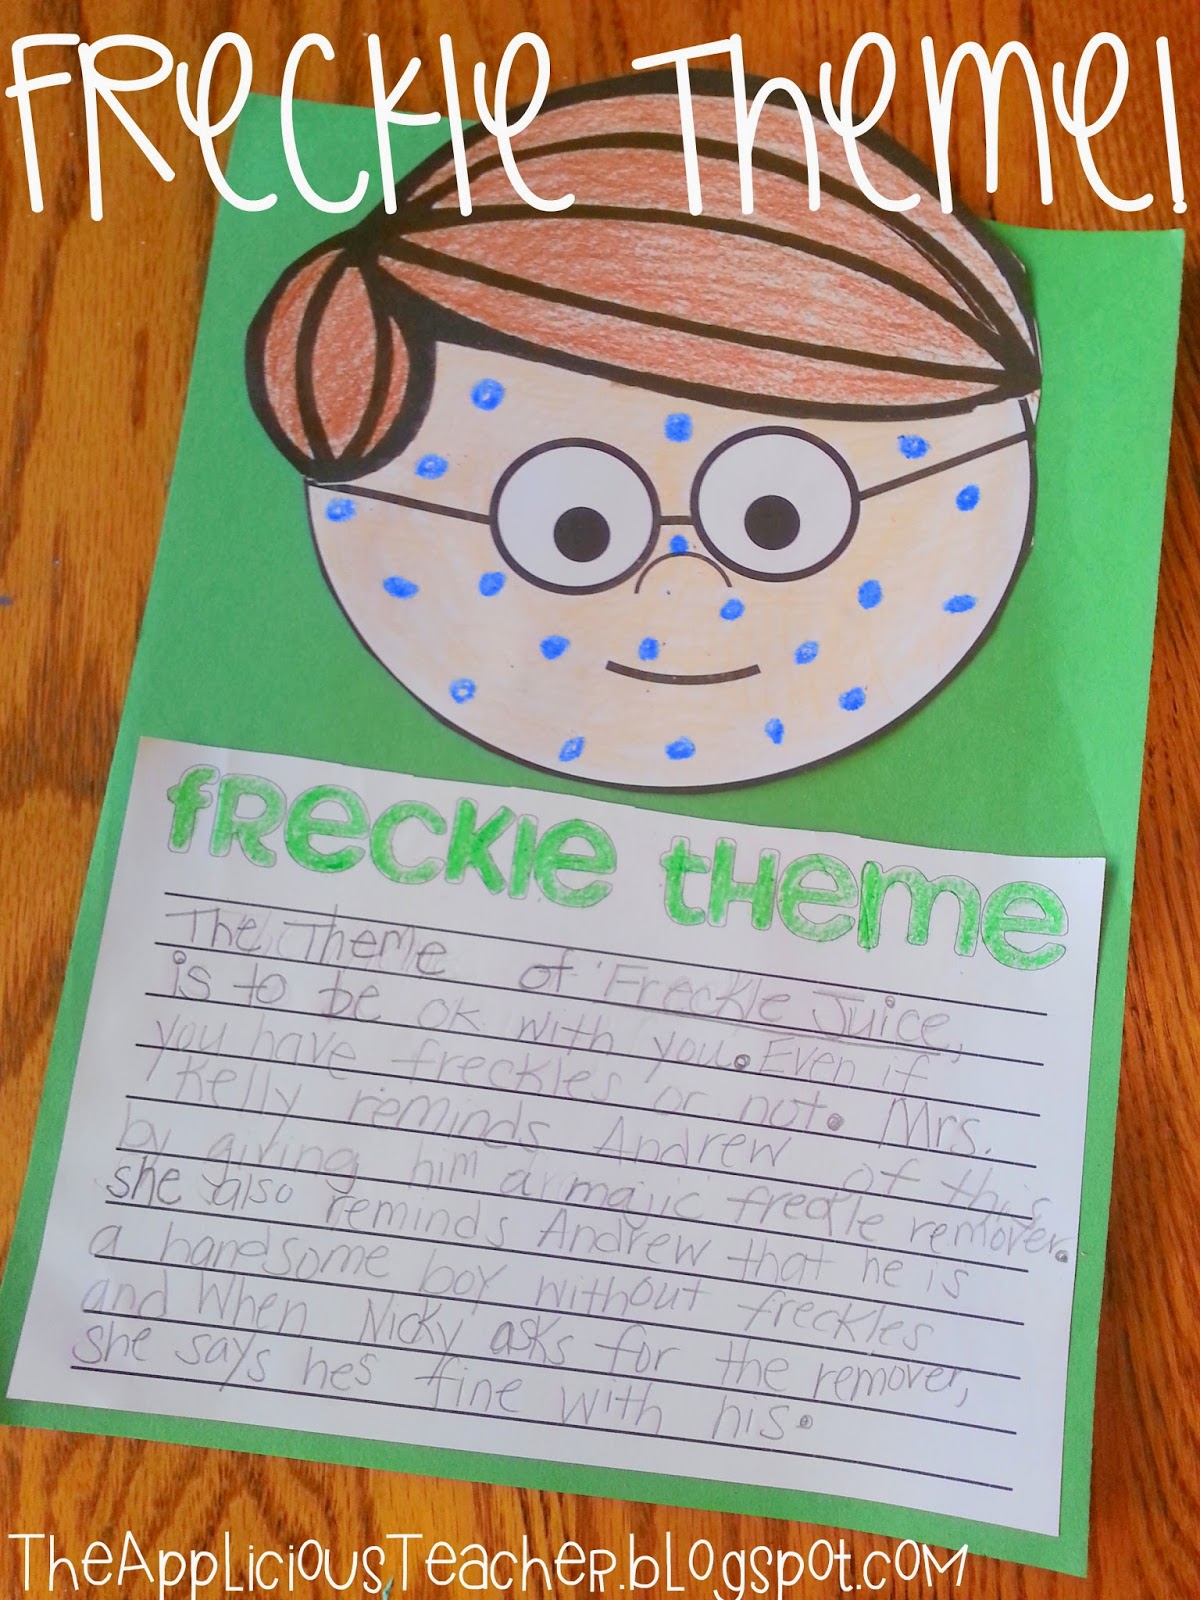 FRecKle Theme!
fRecKle tHeme
The Theme of Freckle Juice,
is to be ok with you. Even if
you have freckles or not. Mrs.
Kelly reminds Andrew of this
by giving him a majic freckle remover.
she also reminds Andrew that he is
a handsome boy without freckles
and when Nicky asks for the remover,
she says hes fine with his.
TheAppliciousTeacher.blogspot.com